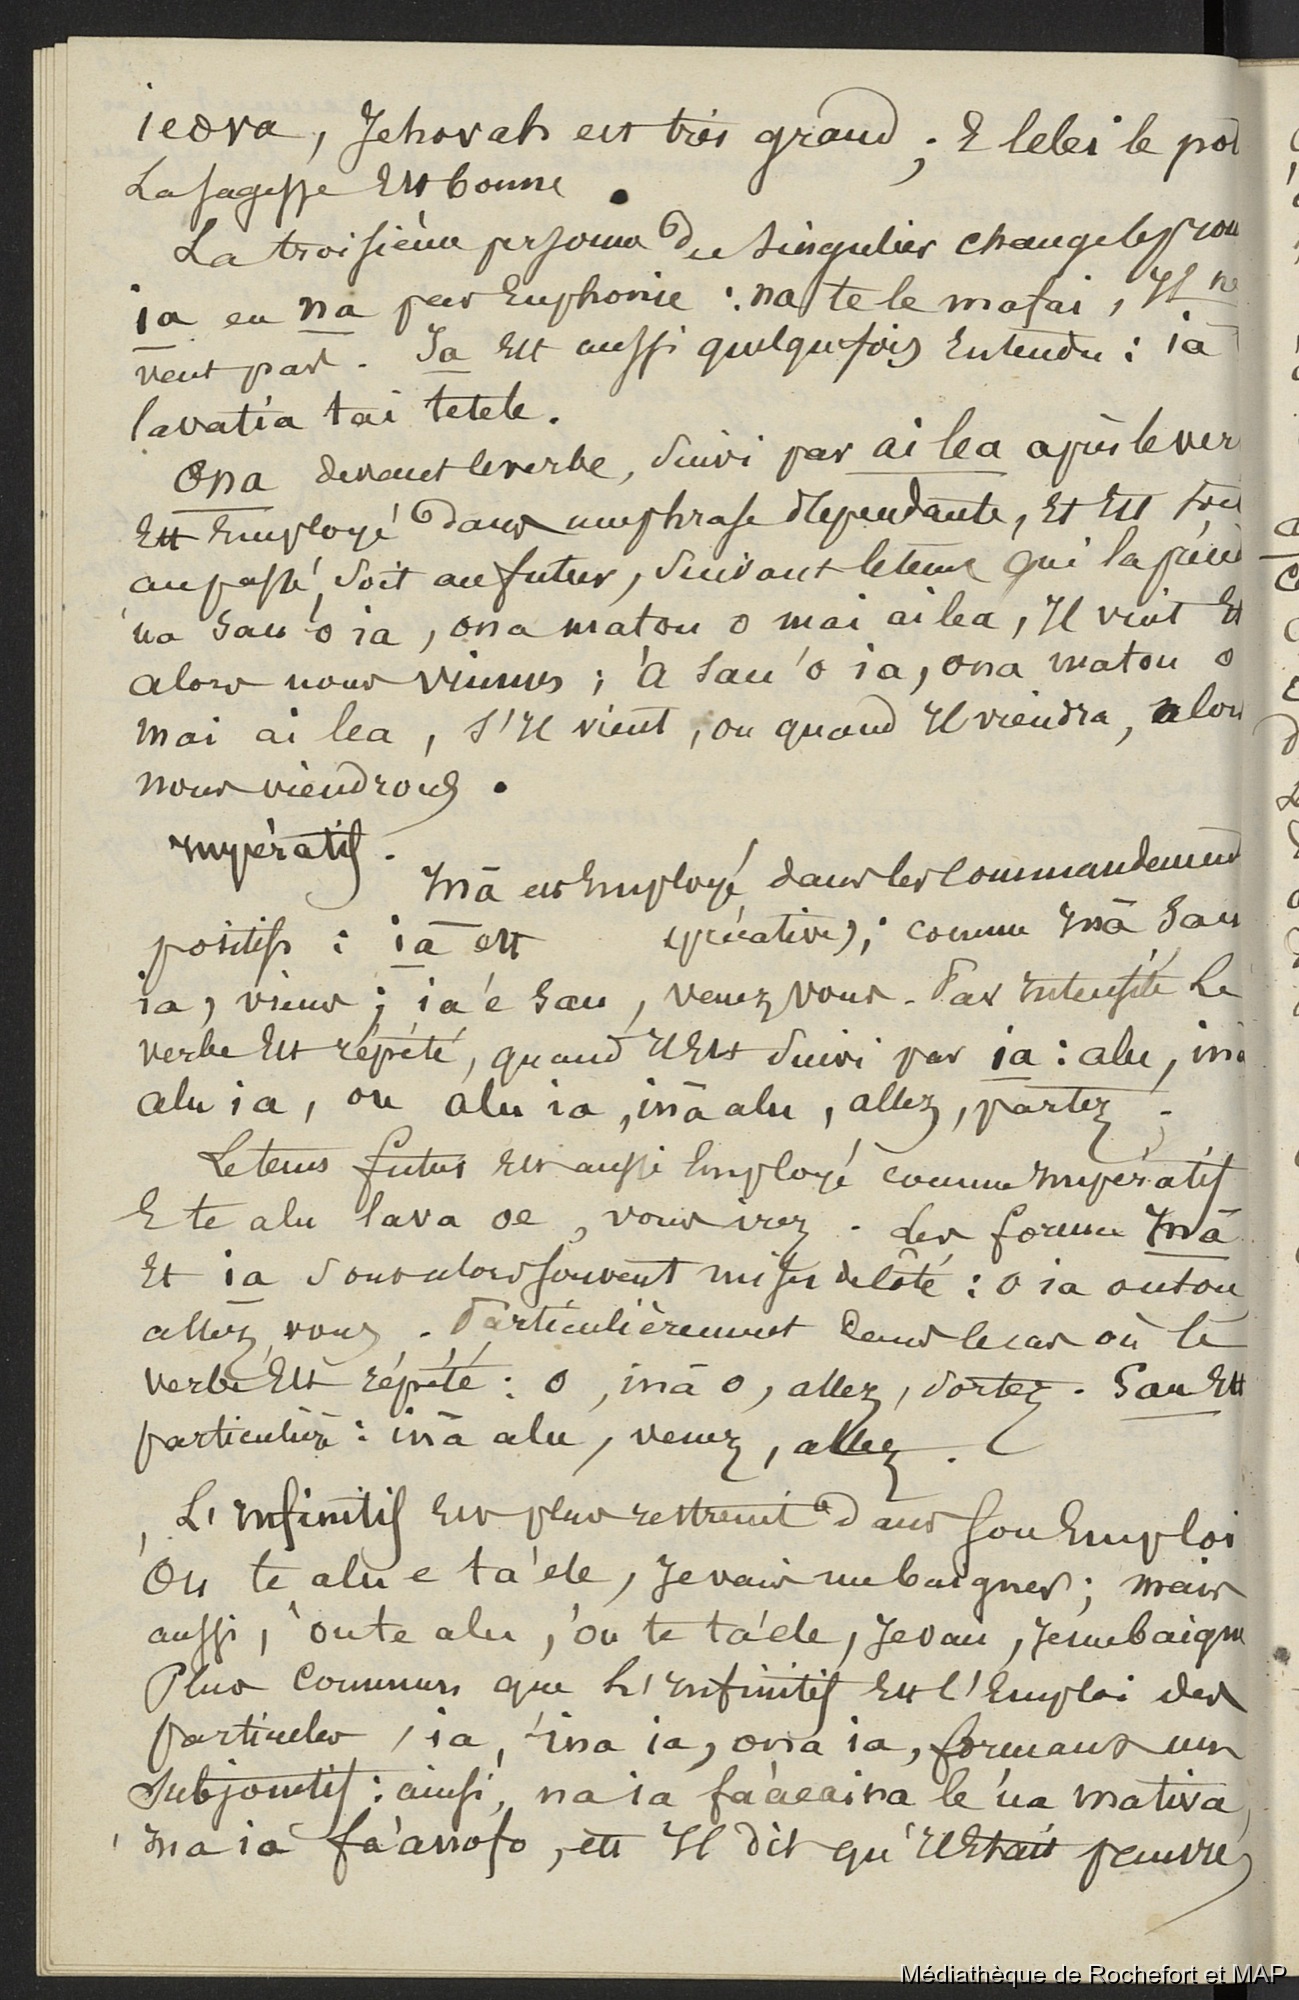 ieova, Jehovah est très grand; E lelei le poi
La sagesse Est bonne.
La troisième personne du singulier change le pron
ia en na par Euphonie : na te le mafai, Il ne
veut pas. Ia Est aussi quelquefois Entendu : ia
lavatia tai tetele.
Ona devant le verbe, suivi par ai lea après le ver
Est Employé dans une phrase dépendante, Et Est soit
au passé, soit au futur, suivant le tems qui la précè
'ua sau 'o ia, ona matou o mai ai lea, Il vint Et
alors nous vinmes ; 'A sau 'o ia, ona matou o
mai ai lea, s'Il vient, ou quand Il viendra, alors
nous viendrons.
Impératif.
Inā est Employé dans les Commandements
positifs : iā est précative); comme Inā sau
ia, viens ; ia 'e sau, venez vous. Par Intensité Le
verbe Est répété, quand Il Est suivi par ia : alu, inā
alu ia, ou alu ia, inā alu, allez, partez ;
Le tems futur Est aussi Employé comme Impératif
E te alu lava oe, vous irez. Les formes Inā
Et ia sont alors souvent mises de côté : o ia outou
allez vous. Particulièrement dans le cas où le
verbe Est répété : o, inā o, allez, sortez. Sau Est
particulier : inā alu, venez, allez.
L'Infinitif Est plus restreint dans son Emploi
'Ou te alu e ta'ele, Je vais me baigner ; mais
aussi, 'oute alu, 'ou te ta'ele, Je vais, Je me baigne
Plus commun que L'Infinitif Est l'Emploi des
particules, ia, 'ina ia, ona ia, formant un
Subjonctif : ainsi, na ia fa'aeaina le 'ua mativa,
'ma ia fa'anofo, Et Il dit qu'Il Etait pauvre,
Médiathèque de Rochefort et MAP